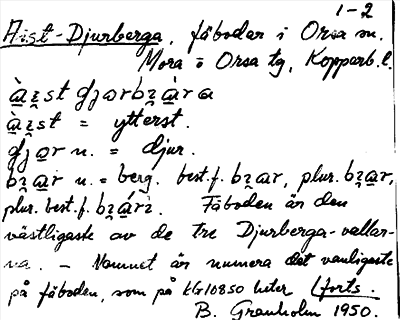 1-2
Äist-Djurberga, fäbodar i Orsa sn.
Mora o Orsa tg, Kopparb. l.
ä̀i̯st gjarbi̯ära
ä̀i̯st = ytterst.
gjar n. = djur.
bi̯är n. = berg. best.f. bi̯ar, plur. bi̯ar,
plur. best.f. bi̯äri. Fäboden är den
västligaste av de tre Djurberga-vallar-
na. – Namnet är numera det vanligaste
på fäboden, som på KG10850 heter (forts.
B. Granholm 1950.